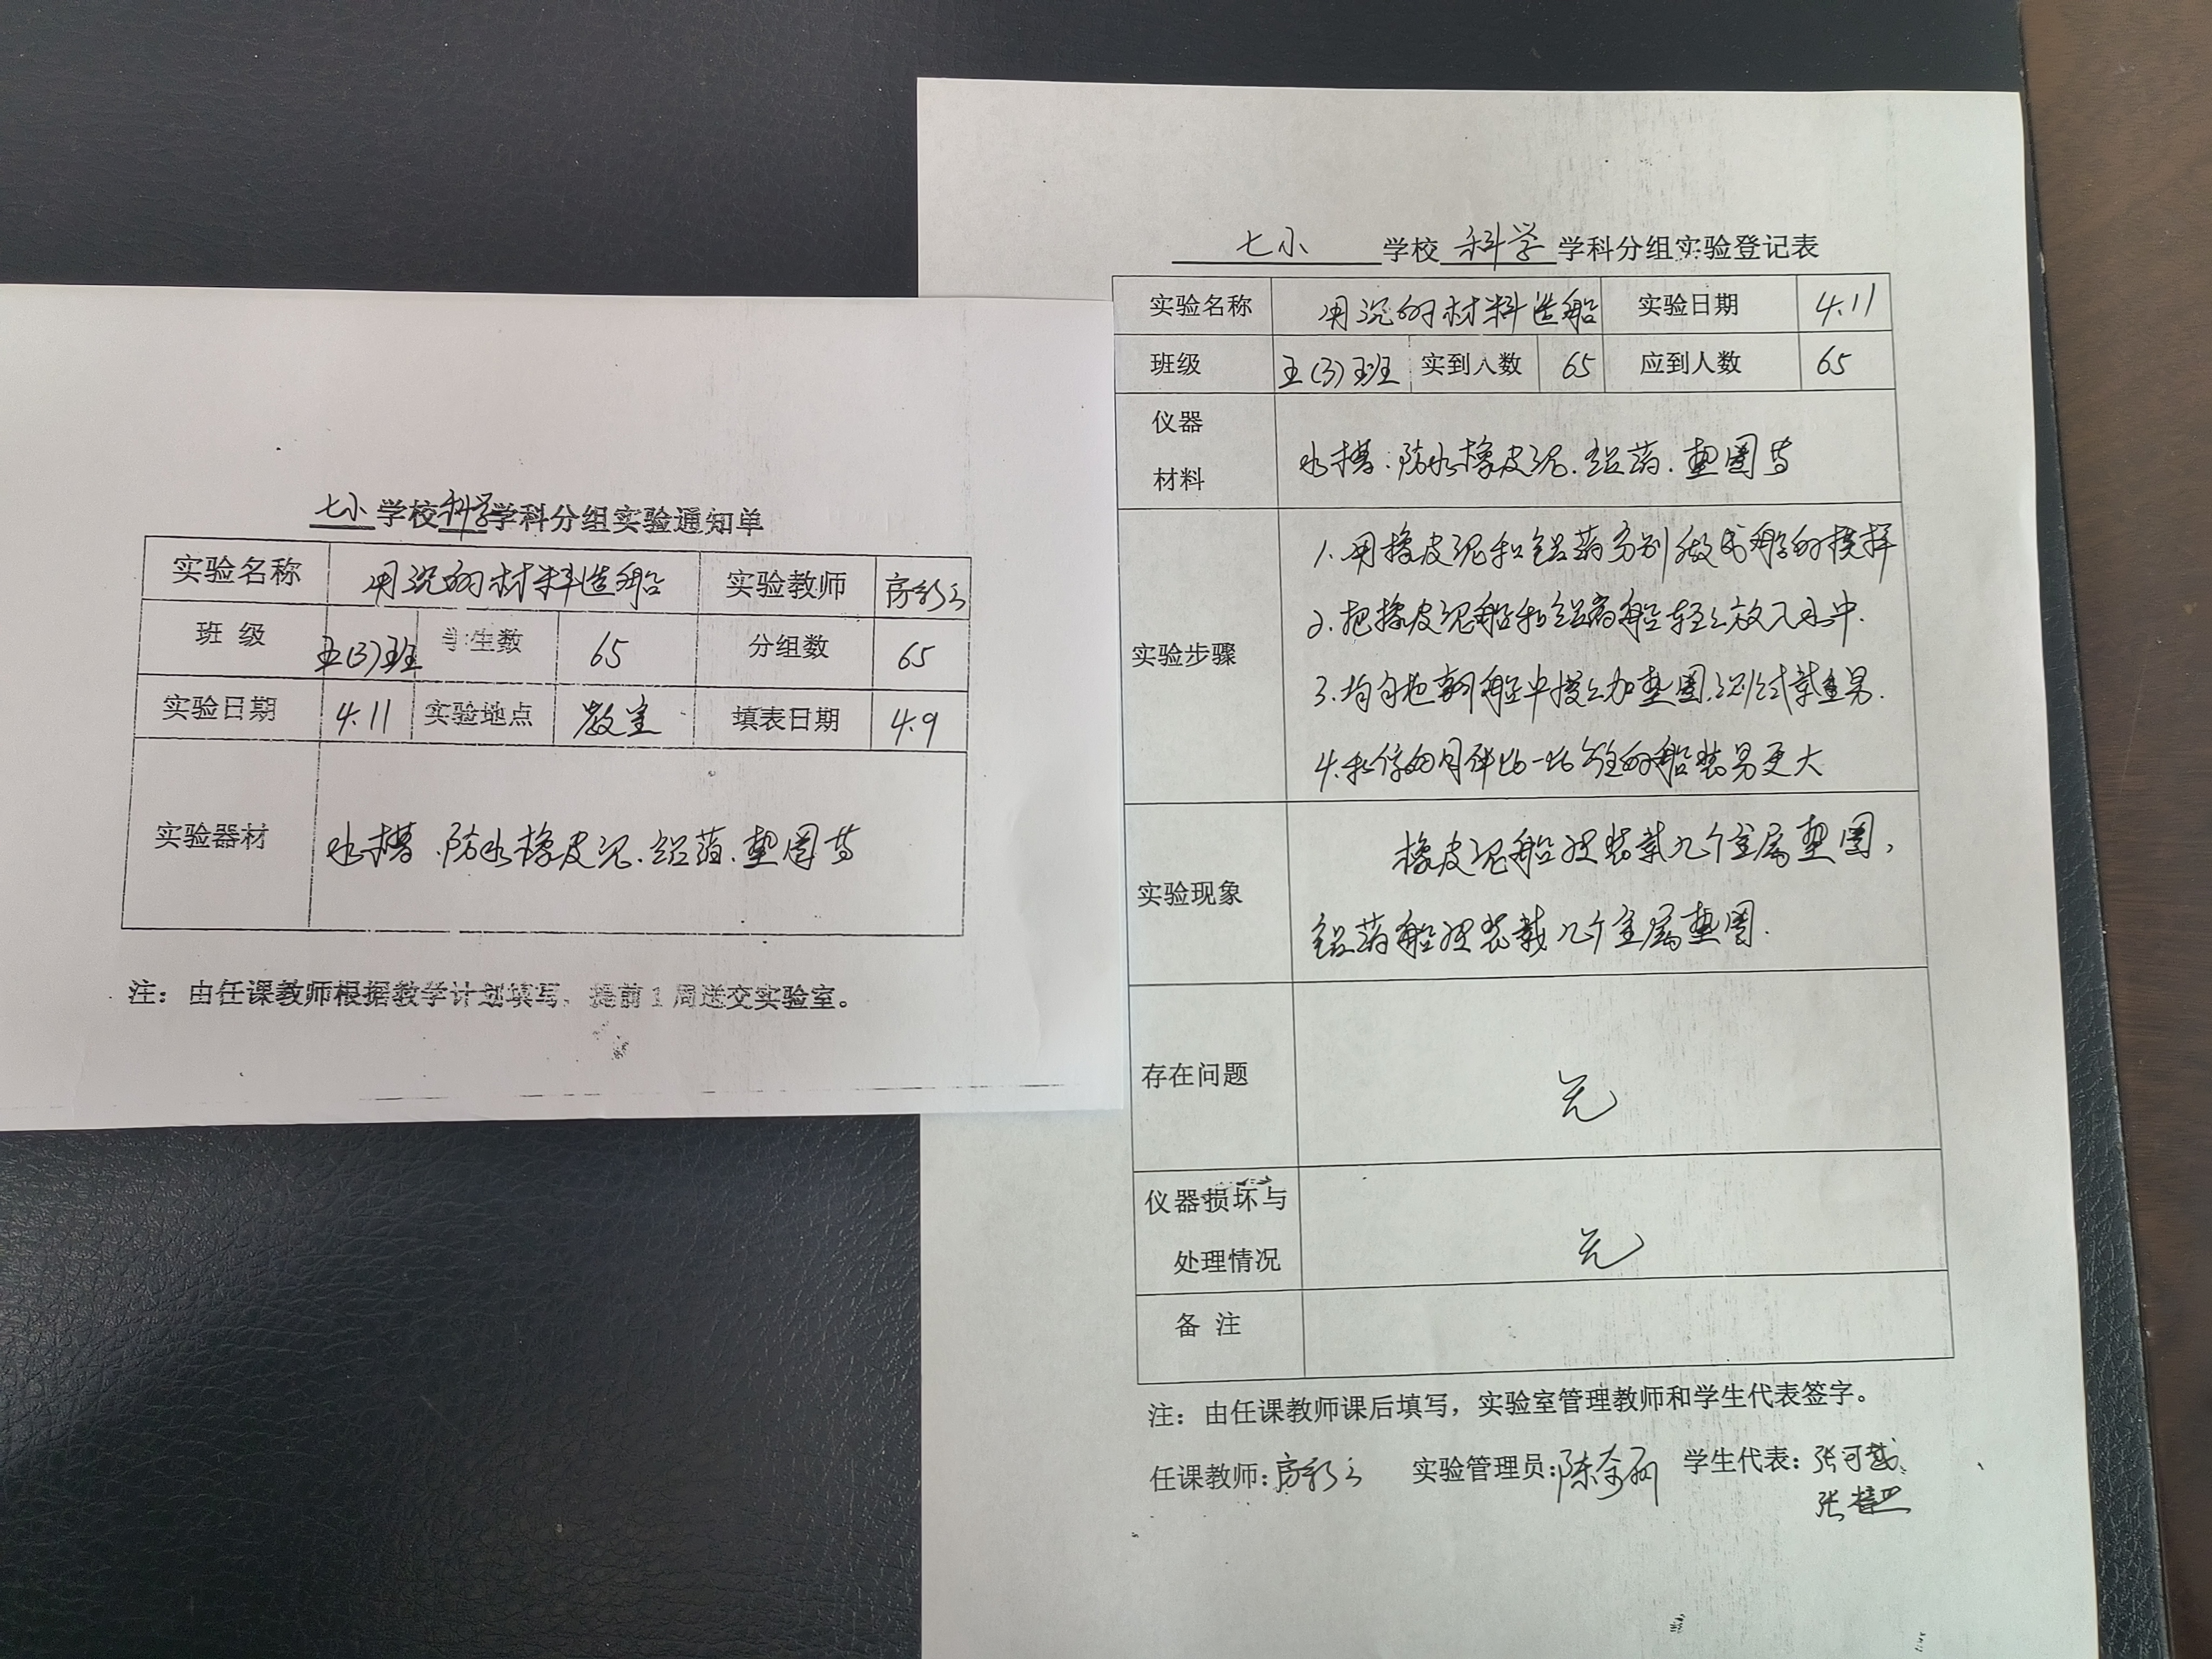 七小 学校 科学 学科分组实验通知单
实验名称 用沉的材料造船 实验教师
班 级 五(3)班 学生数 65 分组数 65
实验日期 4.11 实验地点 教室 填表日期 4.9
实验器材 水槽.防水橡皮泥.铝箔.垫圈等
注：由任课教师根据教学计划填写，提前1周送交实验室。
七小 学校 科学 学科分组实验登记表
实验名称 用沉的材料造船 实验日期 4.11
班级 五(3)班 实到人数 65 应到人数 65
仪器
材料
水槽.防水橡皮泥.铝箔.垫圈等
实验步骤
1.用橡皮泥和铝箔分别做成船的模样
2.把橡皮泥船和铝箔船轻轻放入水中.
3.各自把船中慢慢加垫圈.测试载重量.
4.和你的同伴比一比 的船装量更大
实验现象
橡皮泥船 装载几个金属垫圈,
铝箔船 装载几个金属垫圈.
存在问题
无
仪器损坏与
处理情况
无
备 注
注：由任课教师课后填写，实验室管理教师和学生代表签字。
任课教师: 实验管理员: 学生代表: